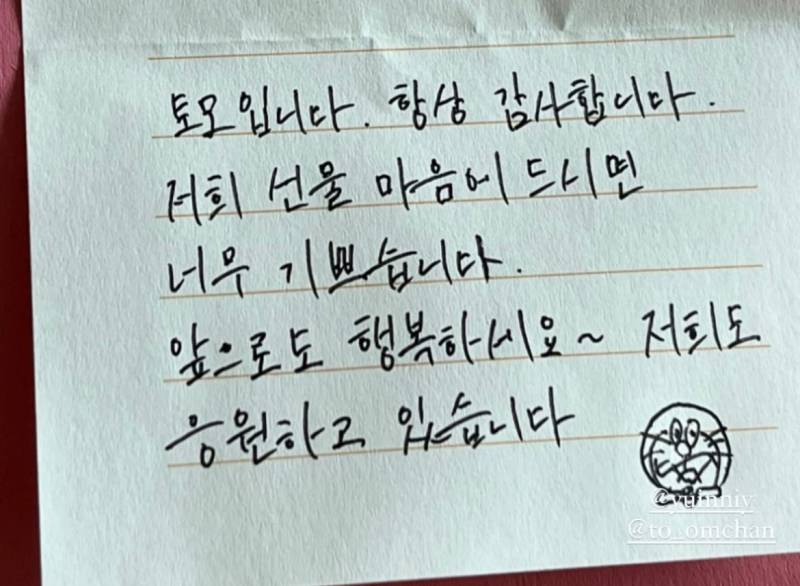 토모입니다. 항상 감사합니다.
저희 선물 마음에 드시면
너무 기쁘습니다.
앞으로도 행복하세요~ 저희도
응원하고 있습니다
@yuinniy
@to_omchan